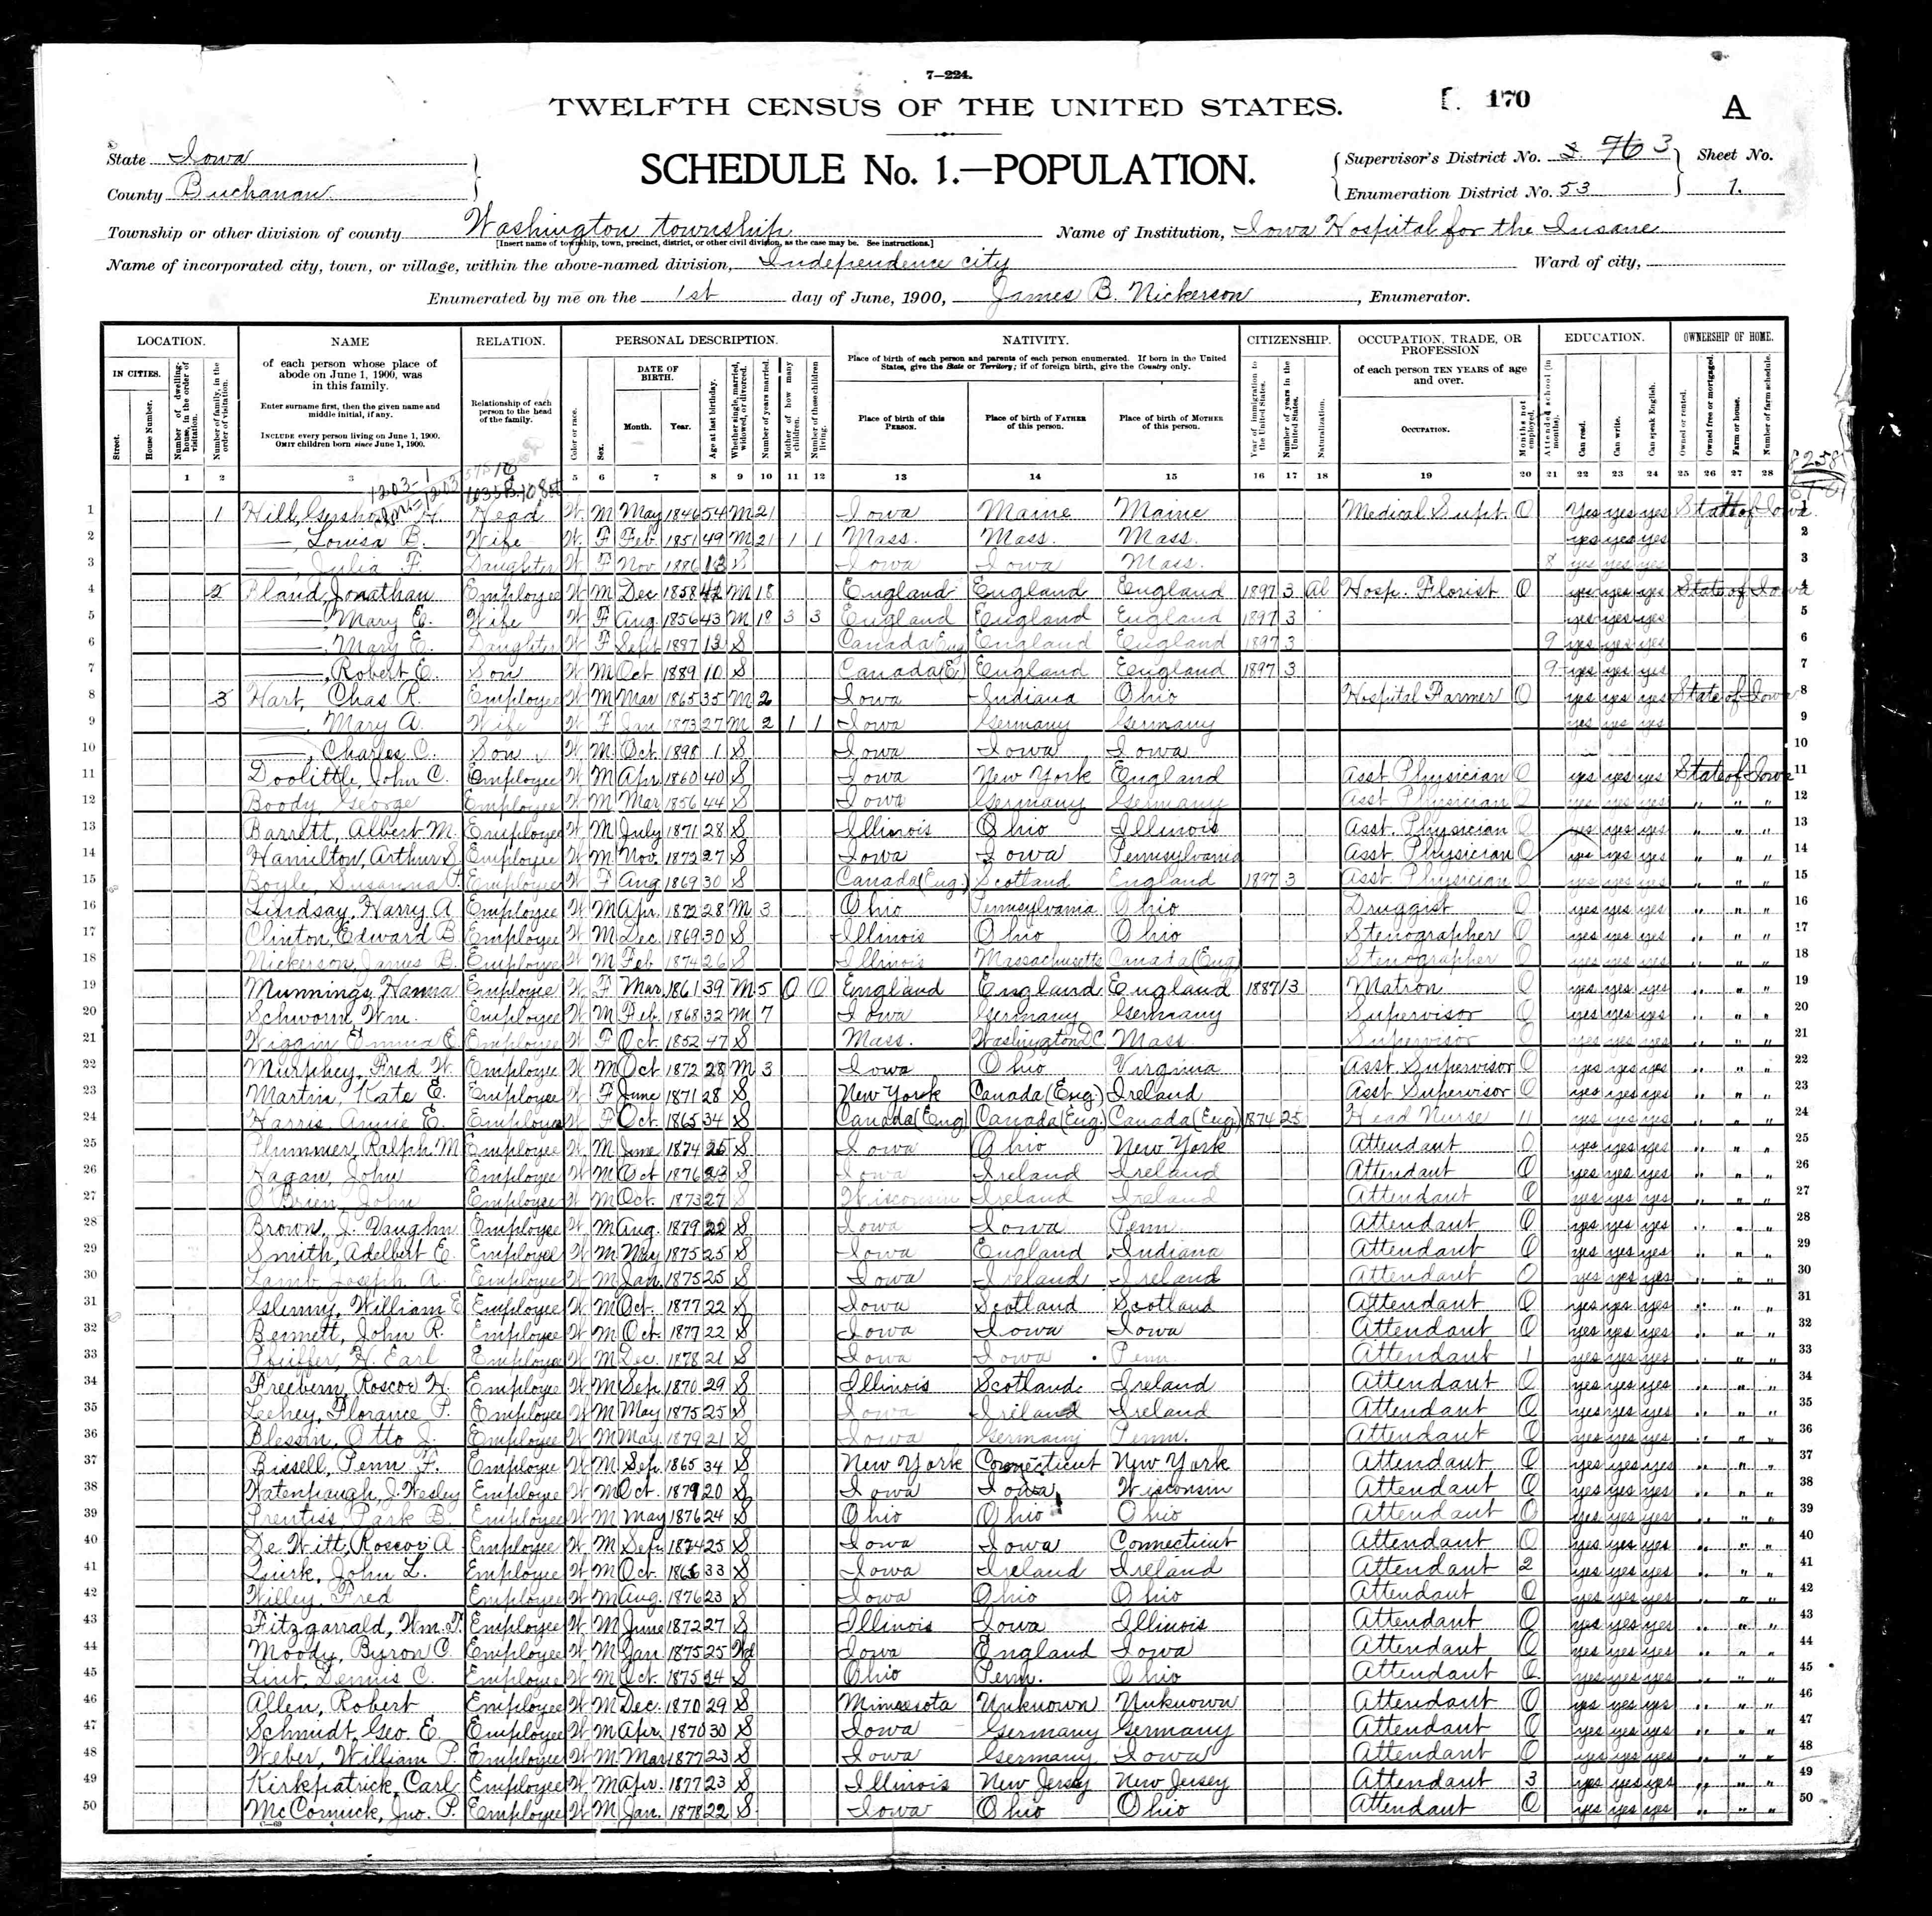 7—224.
TWELFTH CENSUS OF THE UNITED STATES.
170
A
State Iowa
County Buchanan
SCHEDULE No. 1.—POPULATION.
Supervisor's District No. 3
Enumeration District No. 53
Sheet No. 1.
Township or other division of county Washington township
[Insert name of township, town, precinct, district, or other civil division, as the case may be. See instructions.]
Name of Institution, Iowa Hospital for the Insane
Name of incorporated city, town, or village, within the above-named division, Independence city
Ward of city,
Enumerated by me on the 1st day of June, 1900, James B. Nickerson, Enumerator.
LOCATION. NAME RELATION. PERSONAL DESCRIPTION. NATIVITY. CITIZENSHIP. OCCUPATION, TRADE, OR PROFESSION EDUCATION. OWNERSHIP OF HOME.
IN CITIES.
Street.
House Number.
Number of dwelling-house, in the order of visitation.
Number of family, in the order of visitation.
of each person whose place of abode on June 1, 1900, was in this family.
Enter surname first, then the given name and middle initial, if any.
INCLUDE every person living on June 1, 1900.
OMIT children born since June 1, 1900.
Relationship of each person to the head of the family.
Color or race.
Sex.
DATE OF BIRTH.
Month. Year.
Age at last birthday.
Whether single, married, widowed, or divorced.
Number of years married.
Mother of how many children.
Number of these children living.
Place of birth of each person and parents of each person enumerated. If born in the United States, give the State or Territory; if of foreign birth, give the Country only.
Place of birth of this PERSON.
Place of birth of FATHER of this person.
Place of birth of MOTHER of this person.
Year of immigration to the United States.
Number of years in the United States.
Naturalization.
of each person TEN YEARS of age and over.
OCCUPATION.
Months not employed.
Attended school (in months).
Can read.
Can write.
Can speak English.
Owned or rented.
Owned free or mortgaged.
Farm or house.
Number of farm schedule.
1 2 3 5 6 7 8 9 10 11 12 13 14 15 16 17 18 19 20 21 22 23 24 25 26 27 28
1 1 Hill, Head W M May 1846 54 M 21 Iowa Maine Maine Medical Supt. 0 Yes yes yes State of Iowa 1
2 —, Louisa B. Wife W F Feb. 1851 49 M 21 1 1 Mass. Mass. Mass. yes yes yes 2
3 —, Julia F. Daughter W F Nov. 1886 13 S Iowa Iowa Mass. 8 yes yes yes 3
4 2 Bland, Jonathan Employee W M Dec 1858 M 18 England England England 1897 3 Al Hosp. Florist 0 yes yes yes State of Iowa 4
5 —, Mary E. Wife W F Aug. 1856 43 M 18 3 3 England England England 1897 3 yes yes yes 5
6 —, Mary E. Daughter W F Sept 1887 13 S Canada Eng England England 1897 3 9 yes yes yes 6
7 —, Robert E. Son W M Oct 1889 10 S Canada (E) England England 1897 3 9 yes yes yes 7
8 3 Hart, Chas R. Employee W M Mar 1865 35 M 2 Iowa Indiana Ohio Hospital Farmer 0 yes yes yes State of Iowa 8
9 —, Mary A. Wife W F Jan 1873 27 M 2 1 1 Iowa Germany Germany yes yes yes 9
10 —, Charles C. Son W M Oct. 1898 1 S Iowa Iowa Iowa 10
11 Doolittle, John C. Employee W M Apr. 1860 40 S Iowa New York England Asst Physician 0 yes yes yes State of Iowa 11
12 Boody, George Employee W M Mar 1856 44 S Iowa Germany Germany Asst Physician 0 yes yes yes " " " 12
13 Barrett, Albert M. Employee W M July 1871 28 S Illinois Ohio Illinois Asst. Physician 0 yes yes yes " " " 13
14 Hamilton, Arthur S. Employee W M Nov. 1872 27 S Iowa Iowa Pennsylvania Asst. Physician 0 yes yes yes " " " 14
15 Boyle, Susanna Employee W F Aug 1869 30 S Canada (Eng.) Scotland England 1897 3 Asst. Physician 0 yes yes yes " " " 15
16 Lindsay, Harry A Employee W M Apr. 1872 28 M 3 Ohio Pennsylvania Ohio Druggist 0 yes yes yes " " " 16
17 Clinton, Edward B. Employee W M Dec. 1869 30 S Illinois Ohio Ohio Stenographer 0 yes yes yes " " " 17
18 Nickerson, James B. Employee W M Feb 1874 26 S Illinois Massachusetts Canada (Eng) Stenographer 0 yes yes yes " " " 18
19 Munnings, Hanna Employee W F Mar. 1861 39 M 5 0 0 England England England 1887 13 Matron 0 yes yes yes " " " 19
20 Schworm, Wm. Employee W M Feb. 1868 32 M 7 Iowa Germany Germany Supervisor 0 yes yes yes " " " 20
21 Wiggin, Emma E. Employee W F Oct. 1852 47 S Mass. Washington D.C. Mass. Supervisor 0 yes yes yes " " " 21
22 Murphey, Fred W. Employee W M Oct 1872 28 M 3 Iowa Ohio Virginia Asst Supervisor 0 yes yes yes " " " 22
23 Martin, Kate E. Employee W F June 1871 28 S New York Canada (Eng.) Ireland Asst Supervisor 0 yes yes yes " " " 23
24 Harris Annie E. Employee W F Oct. 1865 34 S Canada (Eng) Canada (Eng.) Canada (Eng.) 1874 25 Head Nurse 11 yes yes yes " " " 24
25 Plummer, Ralph M Employee W M June 1874 25 S Iowa Ohio New York Attendant 0 yes yes yes " " " 25
26 Hagan, John Employee W M Oct 1876 23 S Iowa Ireland Ireland Attendant 0 yes yes yes " " " 26
27 O'Brien, John Employee W M Oct. 1873 27 S Wisconsin Ireland Ireland Attendant 0 yes yes yes " " " 27
28 Brown, J. Vaughn Employee W M Aug. 1879 22 S Iowa Iowa Penn. Attendant 0 yes yes yes " " " 28
29 Smith, Adelbert E. Employee W M May 1875 25 S Iowa England Indiana Attendant 0 yes yes yes " " " 29
30 Lamb, Joseph A. Employee W M Jan. 1875 25 S Iowa Ireland Ireland Attendant 0 yes yes yes " " " 30
31 Glenny, William E Employee W M Oct. 1877 22 S Iowa Scotland Scotland Attendant 0 yes yes yes " " " 31
32 Bennett, John R. Employee W M Oct. 1877 22 S Iowa Iowa Iowa Attendant 0 yes yes yes " " " 32
33 Pfeiffer, H. Earl Employee W M Dec. 1878 21 S Iowa Iowa Penn. Attendant 1 yes yes yes " " " 33
34 Freebern, Roscoe H. Employee W M Sep. 1870 29 S Illinois Scotland Ireland Attendant 0 yes yes yes " " " 34
35 Leehey, Florance P. Employee W M May 1875 25 S Iowa Ireland Ireland Attendant 0 yes yes yes " " " 35
36 Blessin, Otto J. Employee W M May 1879 21 S Iowa Germany Penn. Attendant 0 yes yes yes " " " 36
37 Bissell, Penn F. Employee W M Sep. 1865 34 S New York Connecticut New York Attendant 0 yes yes yes " " " 37
38 Watenpaugh, J. Wesley Employee W M Oct. 1879 20 S Iowa Iowa Wisconsin Attendant 0 yes yes yes " " " 38
39 Prentiss, Park B. Employee W M May 1876 24 S Ohio Ohio Ohio Attendant 0 yes yes yes " " " 39
40 De Witt, Roscoe A Employee W M Sep. 1874 25 S Iowa Iowa Connecticut Attendant 0 yes yes yes " " " 40
41 Quirk, John L. Employee W M Oct. 1866 33 S Iowa Ireland Ireland Attendant 2 yes yes yes " " " 41
42 Willey, Fred Employee W M Aug. 1876 23 S Iowa Ohio Ohio Attendant 0 yes yes yes " " " 42
43 Fitzgarrald, Wm. F. Employee W M June 1872 27 S Illinois Iowa Illinois Attendant 0 yes yes yes " " " 43
44 Moody, Byron C. Employee W M Jan 1875 25 Wd Iowa England Iowa Attendant 0 yes yes yes " " " 44
45 Lint, Dennis C. Employee W M Oct. 1875 24 S Ohio Penn. Ohio Attendant 0 yes yes yes " " " 45
46 Allen, Robert Employee W M Dec. 1870 29 S Minnesota Unknown Unknown Attendant 0 yes yes yes " " " 46
47 Schmidt, Geo. E. Employee W M Apr. 1870 30 S Iowa Germany Germany Attendant 0 yes yes yes " " " 47
48 Weber, William P. Employee W M Mar 1877 23 S Iowa Germany Iowa Attendant 0 yes yes yes " " " 48
49 Kirkpatrick, Carl Employee W M Apr. 1877 23 S Illinois New Jersey New Jersey Attendant 3 yes yes yes " " " 49
50 McCormick, Jno. P. Employee W M Jan. 1878 22 S Iowa Ohio Ohio Attendant 0 yes yes yes " " " 50